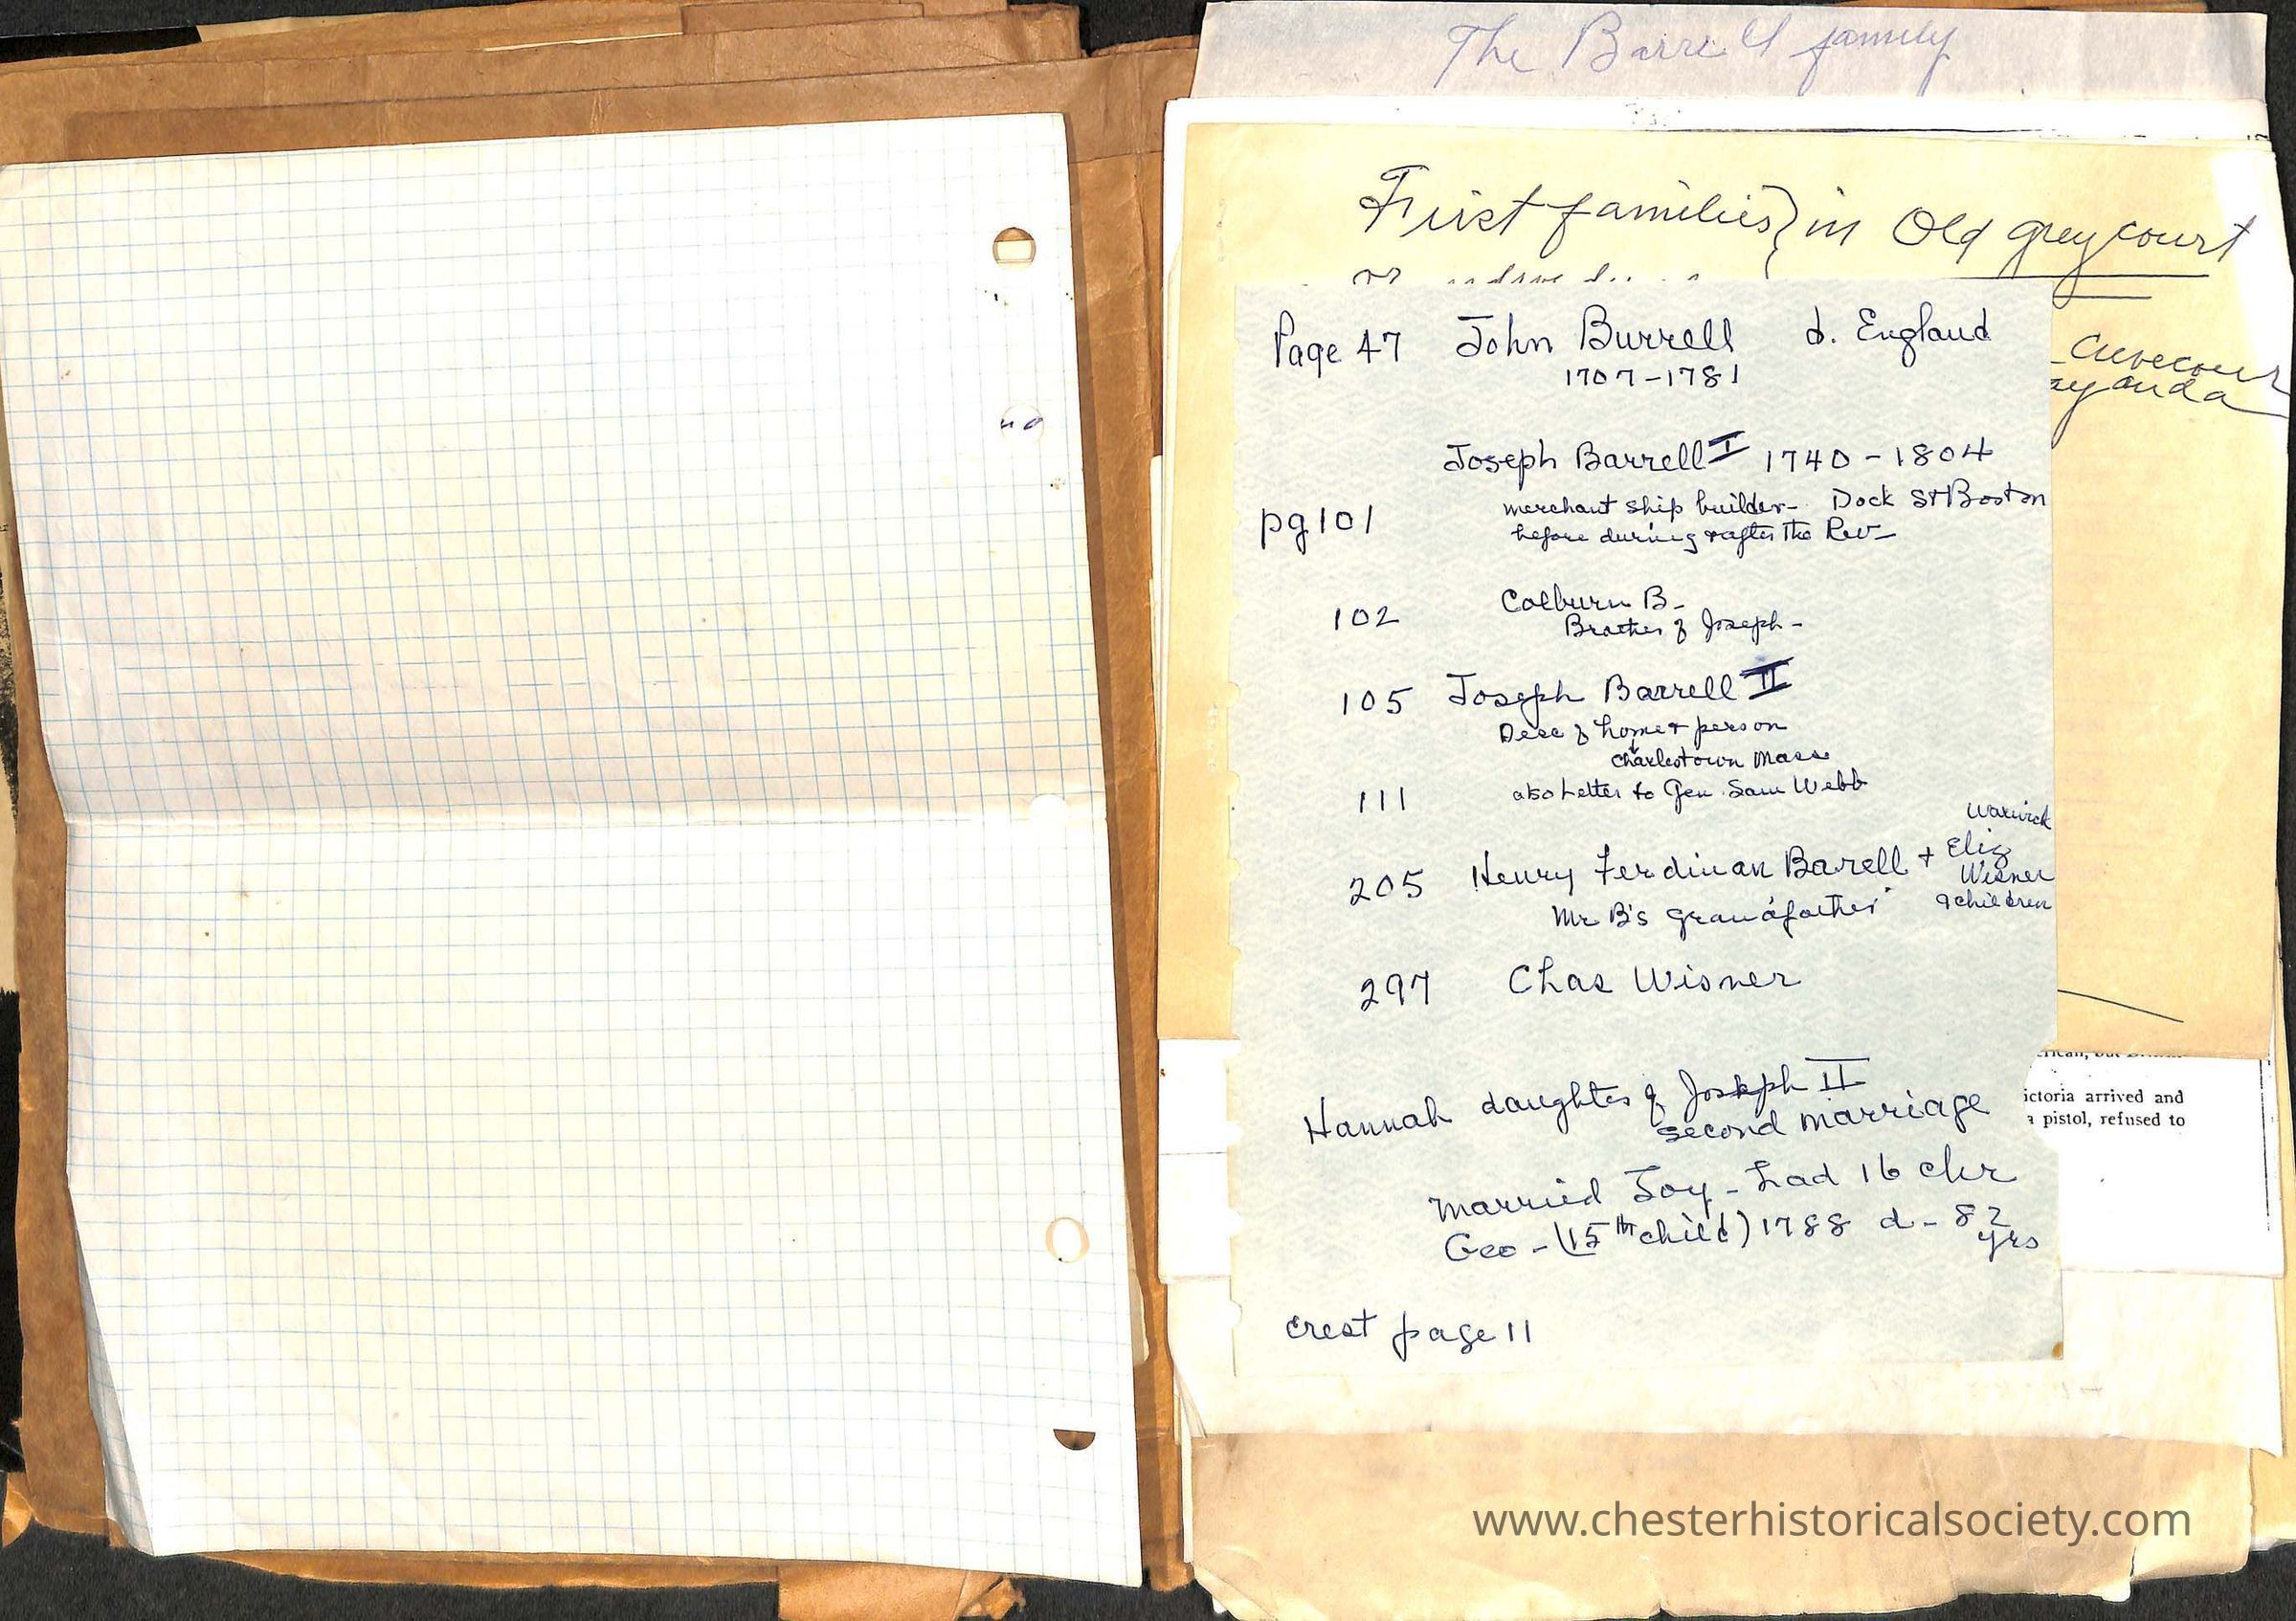 The Barrell family
First families } in Old greycourt
Page 47 John Burrell d. England
1707-1781
Joseph Barrell I 1740-1804
pg 101 merchant ship builder- Dock St Boston
before during & after the Rev-
102 Colburn B-
Brother of Joseph-
105 Joseph Barrell II
Desc of home & person
Charlestown Mass
111 also Letter to Gen. Sam Webb
Warwick
205 Henry Ferdinan Barell + Eliz
Wisner
Mr B's grandfather 9 children
297 Chas Wisner
Hannah daughter of Joseph II
second marriage
married Joy - had 16 chr
Geo - (15th child) 1788 d - 82
yrs
crest page 11
ictoria arrived and
a pistol, refused to
www.chesterhistoricalsociety.com